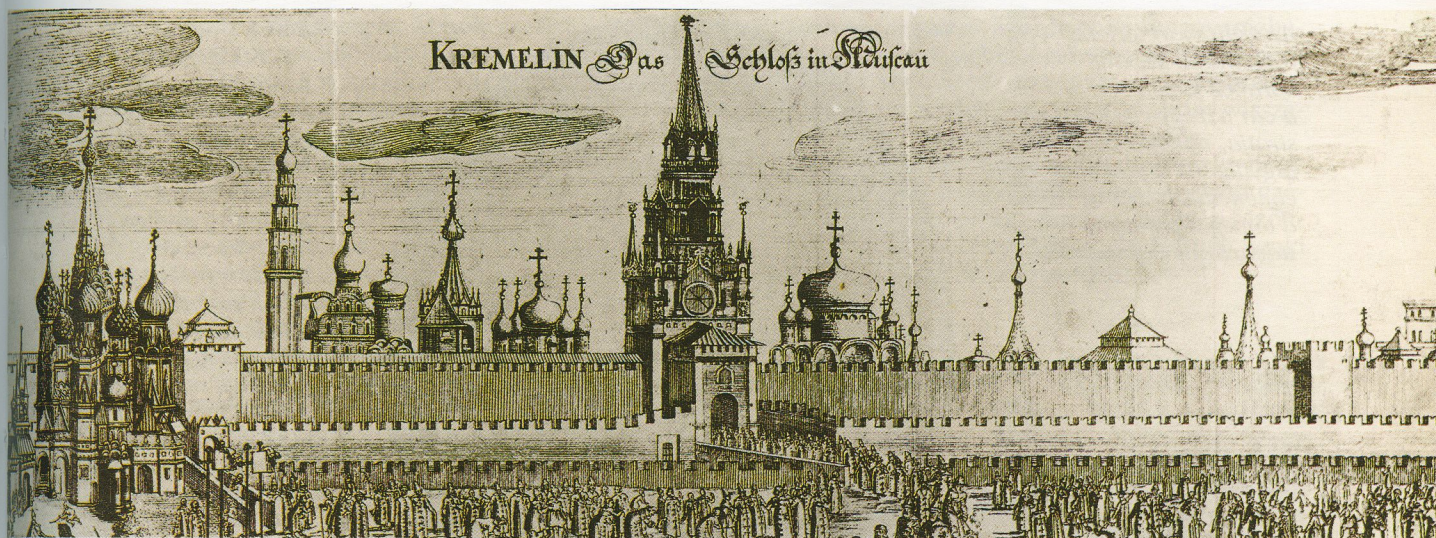 KREMELIN Das Schloß in Müscaü